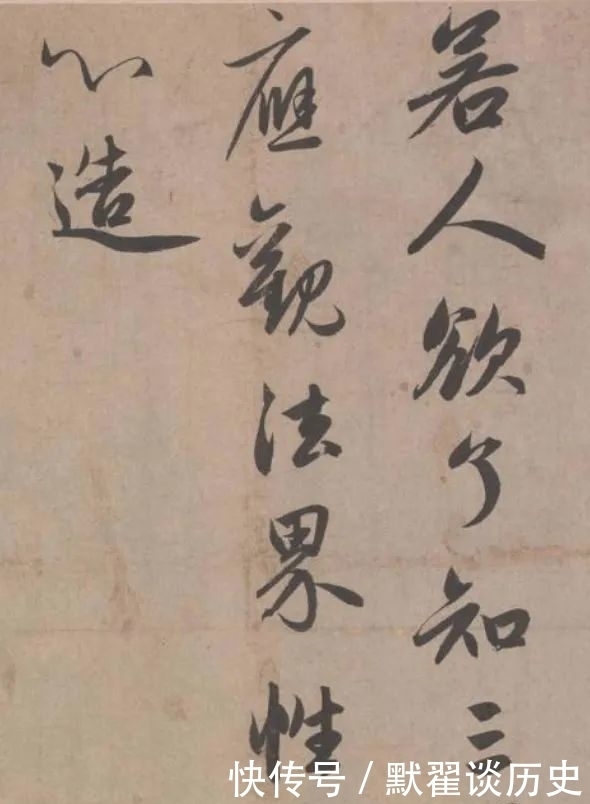 若人欲了知三
應觀法界性
心造
快传号/默翟谈历史